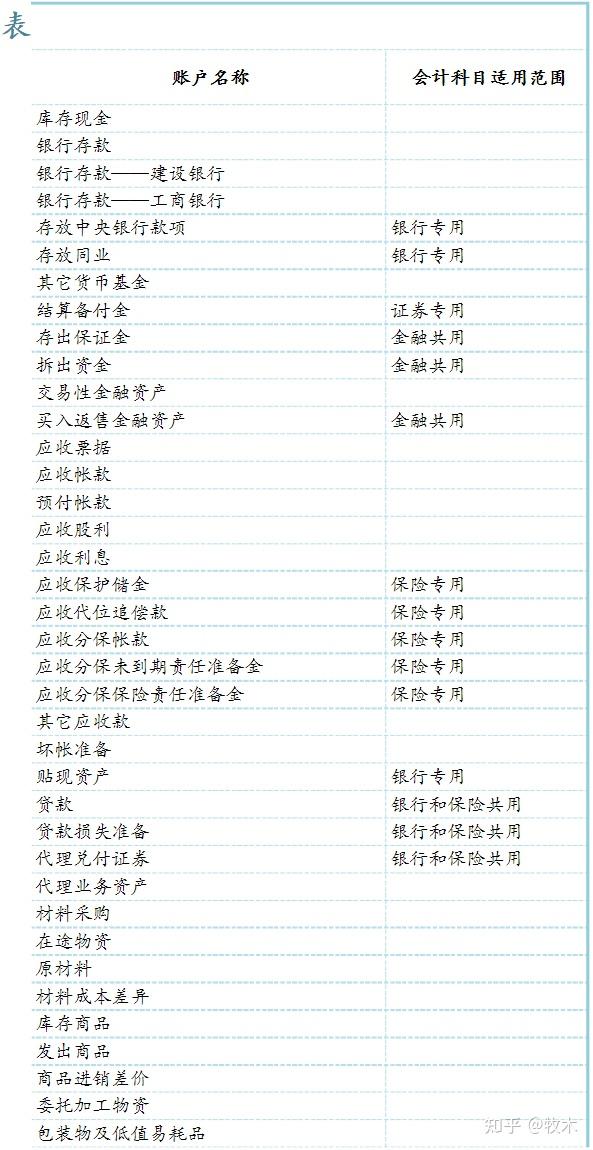 表
账户名称 会计科目适用范围
库存现金
银行存款
银行存款——建设银行
银行存款——工商银行
存放中央银行款项 银行专用
存放同业 银行专用
其它货币基金
结算备付金 证券专用
存出保证金 金融共用
拆出资金 金融共用
交易性金融资产
买入返售金融资产 金融共用
应收票据
应收帐款
预付帐款
应收股利
应收利息
应收保护储金 保险专用
应收代位追偿款 保险专用
应收分保帐款 保险专用
应收分保未到期责任准备金 保险专用
应收分保保险责任准备金 保险专用
其它应收款
坏帐准备
贴现资产 银行专用
贷款 银行和保险共用
贷款损失准备 银行和保险共用
代理兑付证券 银行和保险共用
代理业务资产
材料采购
在途物资
原材料
材料成本差异
库存商品
发出商品
商品进销差价
委托加工物资
包装物及低值易耗品
知乎 @牧木